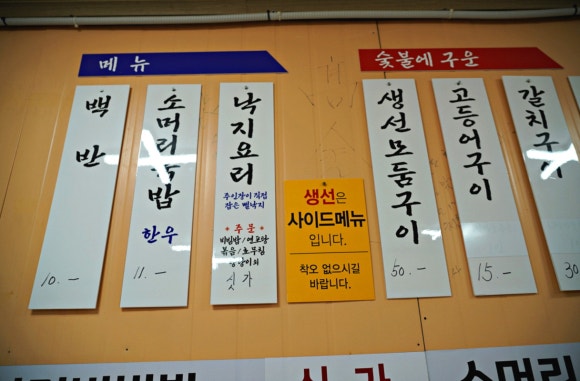 메뉴
숯불에 구운
백반
10.-
소머리국밥
한우
11.-
낙지요리
주인장이 직접
잡은 뻘낙지
* 주문 *
비빔밥/연포탕
볶음/초무침
탕탕이외
싯가
생선은
사이드메뉴
입니다.
착오 없으시길
바랍니다.
생선모둠구이
50.-
고등어구이
15.-
갈치구이
30
소머리